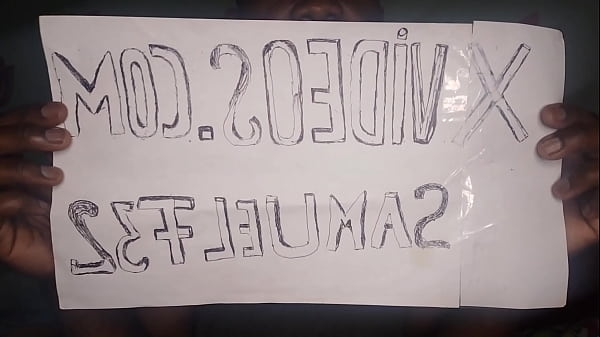 XViDEOS.COM
SAMUELF32